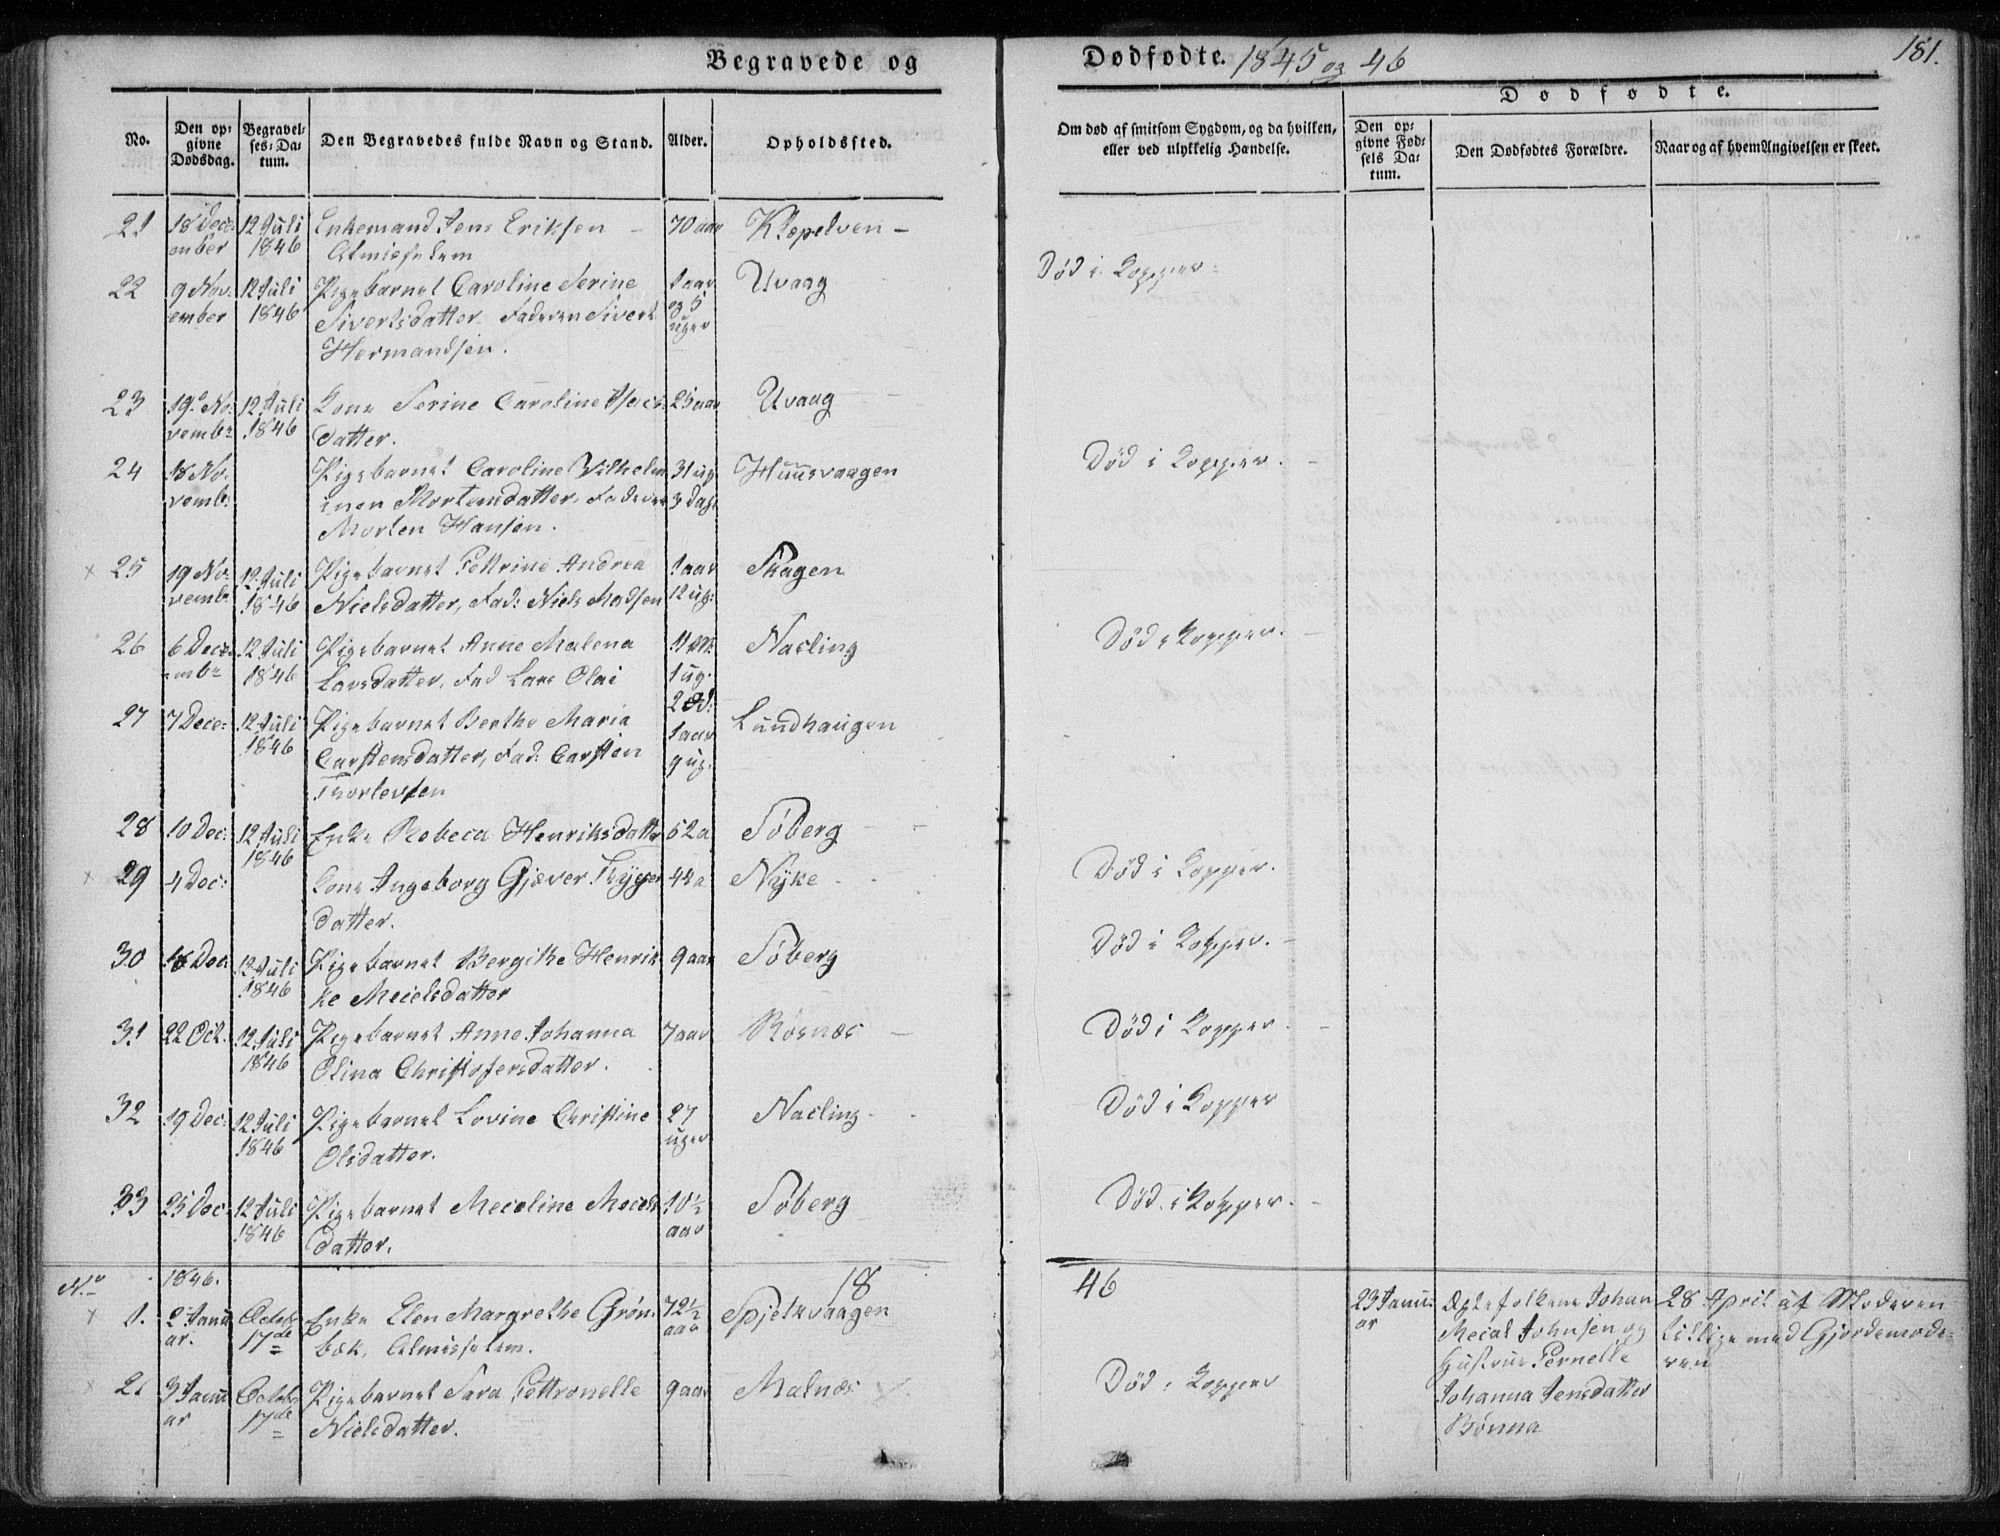 Begravede og Dødfødte. 1845 og 46
181.
No. | Den opgivne Dødsdag. | Begravelses-Datum. | Den Begravedes fulde Navn og Stand. | Alder. | Opholdssted. | Om død af smitsom Sygdom, og da hvilken, eller ved ulykkelig Hændelse. | Dødfødte. | Den opgivne Fødsels Datum. | Den Dødfødtes Forældre. | Naar og af hvem Angivelsen er skeet.
21 | 18 December | 12 Juli 1846 | Enkemand Jens Eriksen – Almisselem | 70 aar | Klopelven –
22 | 9 November | 12 Juli 1846 | Pigebarnet Caroline Serine Sivertsdatter. Faderen Sivert Hermandsen. | 1 aar og 5 uger | Uvaag | Død i Kopper
23 | 19de Novembr | 12 Juli 1846 | Kone Serine Caroline Isacsdatter. | 25 aar | Uvaag
24 | 18 Novemb: | Pigebarnet Caroline Vilhelminen Mortensdatter, Faderen Morten Hansen. | 31 ug 3 Dag: | Huusvaagen | Død i Kopper.
25 | 19 Novemb: | 12 Juli 1846 | Pigebarnet Pettrine Andrea Nielsdatter, Fad: Niels Madsen | 1 aar 12 ug: | Skagen
26 | 6 Decembr | 12 Juli 1846 | Pigebarnet Anne Malena Larsdatter, Fad Lars Olai | 11 M: 1 ug. 2 D: | Nacling | Død i Kopper.
27 | 7 Dece: | 12 Juli 1846 | Pigebarnet Berthe Maria Carstensdatter, Fad: Carsten Thorlevsen | 1 aar 9 ug. | Lundhaugen
28 | 10 Dec: | 12 Juli 1846 | Enke Rebeca Henriksdatter | 52 a | Søberg
29 | 4 Dec: | Kone Ingeborg Gjæver datter. | 44 a | Nyke | Død i Kopper.
30 | 18 Dec: | 12 Juli 1846 | Pigebarnet Bergithe Henrikke Mecielsdatter | 9 aar | Søberg | Død i Kopper.
31 | 22 Oct. | 12 Juli 1846 | Pigebarnet Anne Johanna Olina Christofersdatter. | 7 aar | Røsnæs | Død i Kopper
32 | 19 Dec: | 12 Juli 1846 | Pigebarnet Lovine Christine Olsdatter. | 27 uger | Nacling | Død i Kopper
33 | 25 Dec | 12 Juli 1846 | Pigebarnet Meceline datter. | 10½ aar | Søberg | Død i Kopper.
No 1846. 18 46
1. | 2 Januar. | Octob 17de | Enke Elen Margrethe Grønbæk, Almisselem. | 72½ aar | Spjelkvaagen | 23 Januar | Ægtefolkene Johan Mecal Johnsen og Hustrue Pernelle Johanna Jensdatter Bønna | 28 April af Moderen tillige med Gjordemoderen
2. | 3 Januar | Octob 17de | Pigebarnet Sara Pettronelle Nielsdatter. | 9 aar | Malnæs | Død i Kopper